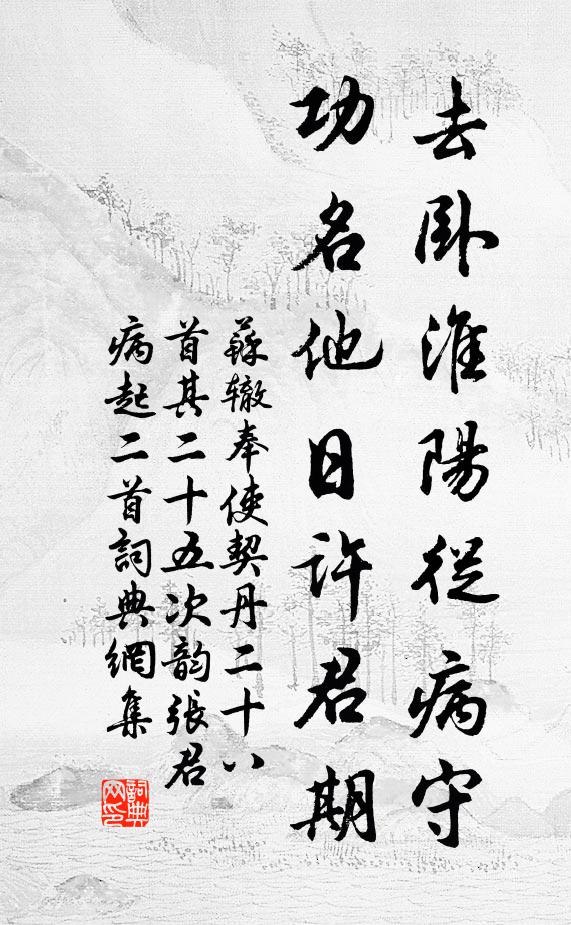 去臥淮陽從病守
功名他日許君期
蘇辙奉使契丹二十八
首其二十五次韵張君
病起二首詞典網集
詞典
网印